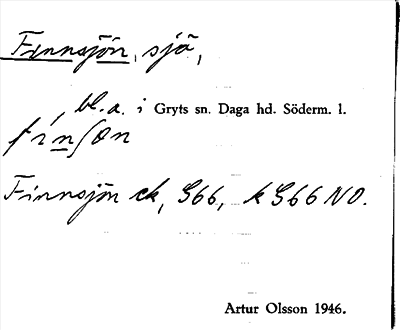 Finnsjön, sjö,
, bl.a. i Gryts sn. Daga hd. Söderm. l.
fìnʃøn
Finnsjön ek, S66, k S66 NO.
Artur Olsson 1946.